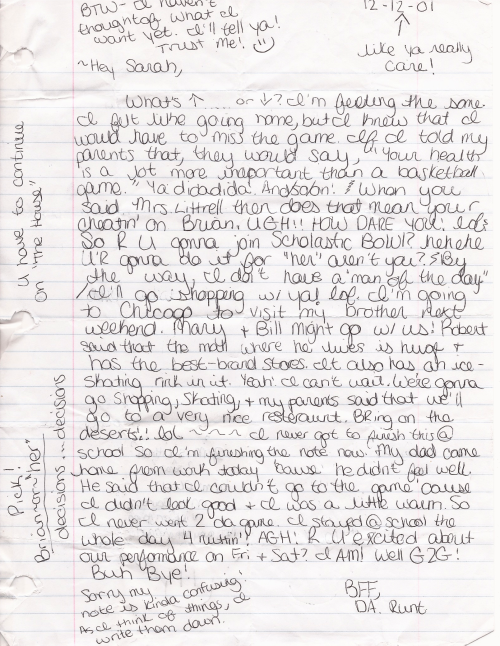 BTW- I haven't
thought of what I
want yet. I'll tell ya!
Trust me!
12-12-01
like ya really
care!
~Hey Sarah,
What's ↑ .... or ↓? I'm feeling the same.
I felt like going home, but I knew that I
would have to miss the game. If I told my
parents that, they would say, "Your health
is a lot more important than a basketball
game." Ya didadida. And soon! When you
said Mrs. Littrell then does that mean your
cheatin' on Brian. UGH!! HOW DARE YOU! lol!
So R U gonna join Scholastic Bowl? hehehe
U'R gonna do it for "her" aren't you? By
the way, I don't have a "man of the day"
I'll go shopping w/ ya! lol. I'm going
to Chicago to visit my brother next
weekend. Mary + Bill might go w/ us! Robert
said that the mall where he lives is huge +
has the best-brand stores. It also has an ice-
skating rink in it. Yeah! I can't wait. We're gonna
go Shopping, Skating, + my parents said that we'll
go to a very nice restaraunt. BRing on the
deserts!! lol ~~~~ I never got to finish this @
school so I'm finishing the note now. My dad came
home from work today 'cause he didn't feel well.
He said that I couldn't go to the game 'cause
I didn't look good + I was a little warm. So
I never went 2 da game. I stayed @ school the
whole day 4 nuttin'! AGH! R U excited about
our performance on Fri + Sat? I AM! Well G2G!
Buh Bye!
BFF,
DA. Runt
Sorry my
note is kinda confusing!
As I think of things, I
write them down.
U have to continue
on "The House"
Pick!
Brian -or- "her"
decisions ... decisions